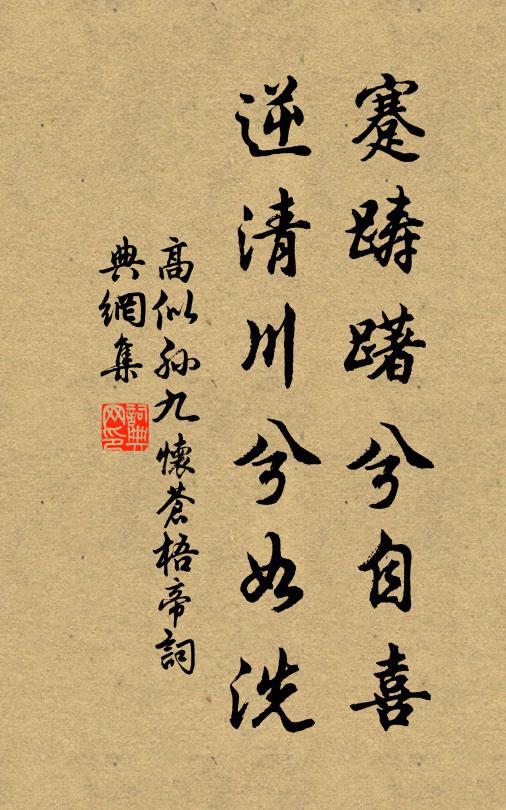 蹇踌躇兮自喜
逆清川兮如洗
高似孙九怀苍梧帝词
典网集
词典网印